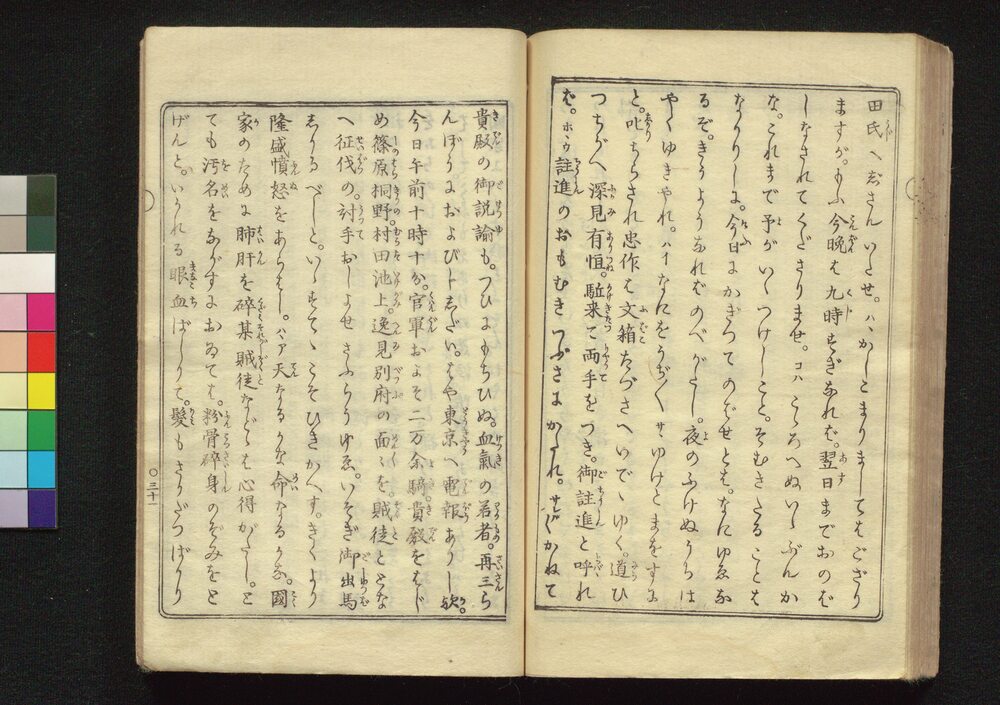 田氏へぢさんいたせ。ハヽかしこまりましてはござり
ますが。もふ今晩も九時すぎなれば。翌日までおのば
しなされてくださりませ。コハこゝろへぬいゝぶんか
な。これまで予がいゝつけしこと。そむきたることも
なかりしに。今日にかぎつてのばせとは。なにゆゑな
るぞ。きうようなればのべがたし。夜のふけぬうちは
やくゆきやれ。ハイなにをうぢ〳〵サヽゆけとまをすに
と。叱ちらされ忠作は文箱たづさへいでゝゆく。道ひ
つちがへ深見有恒。駈来て両手をつき。御註進と呼れ
ば。ホヽウ註進のおもむきつぶさにかたれ。サレバかねて
貴殿の御説諭も。つひにもちひぬ。血氣の若者。再三ら
んぼうにおよびしだい。はや東京へ電報ありし歟。
今日午前十時十分。官軍およそ二万余騎貴殿をはじ
め篠原桐野。村田池上。逸見別府の面々を。賊徒ととな
へ征伐の。討手おしよせさふらうゆゑ。いそぎ御出馬
しかるべしと。いゝすてゝこそひきかへす。きくより
隆盛憤怒をあらはし。ハヽア天なるかな命なるかな。國
家のために肺肝を碎某賊徒などゝは心得がたし。と
ても汚名をながすにおゐては。粉骨碎身のぞみをと
げんと。いかれる眼血ばしりて。髮もさかだつばかり
〇三十一